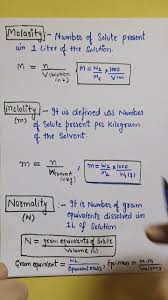 Molarity - Number of Solute present
(M) in 1 Litre of the Solution.
M = n / V(solution (in L)) M = W2 / M2 × 1000 /
molality - It is defined as Number
(m) of Solute present per Kilogram
of the Solvent.
m = n / Wsolvent (in kg) m = W2 / M2 × 1000 /
Normality - It is Number of gram
(N) equivalents dissolved in
1L of Solution
N = gram equivalents of Solute / Volume (L)
Gram equivalent = W2 /